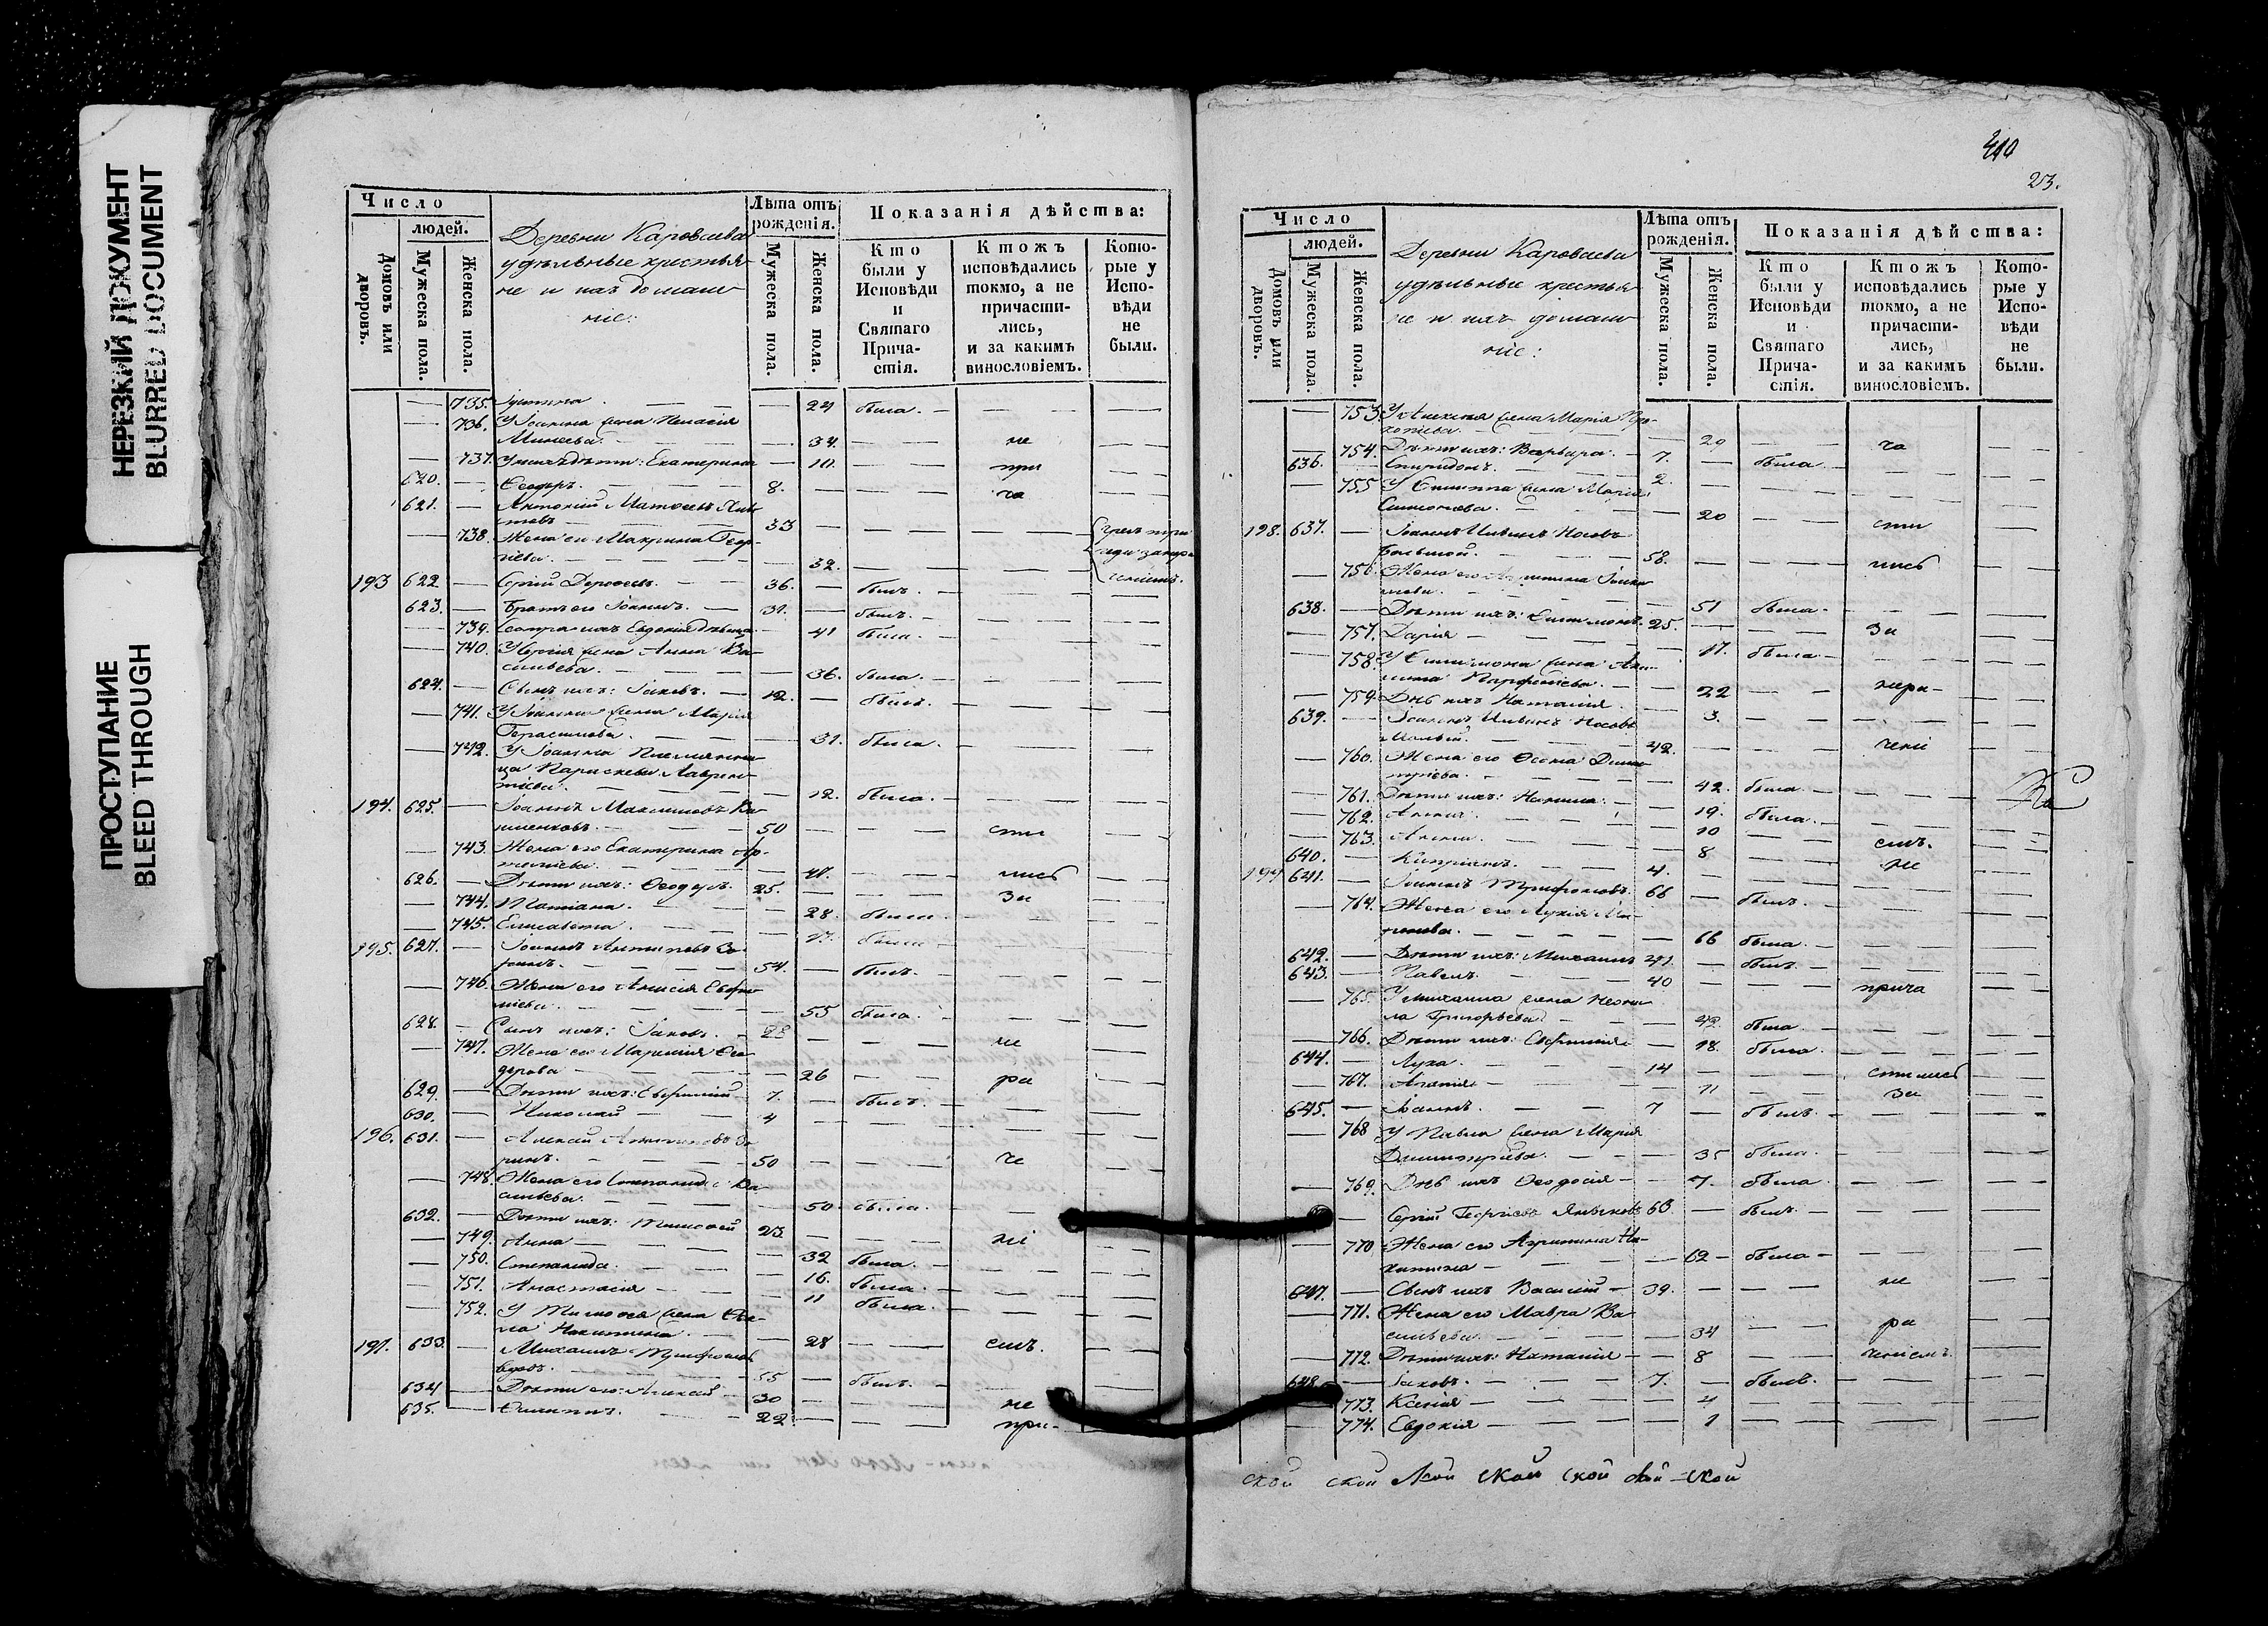 НЕРЕЗКИЙ ДОКУМЕНТ
BLURRED DOCUMENT
ПРОСТУПАНИЕ
BLEED THROUGH
Число
людей.
Домовъ или дворовъ.
Мужеска пола.
Женска пола.
Деревни Караваева
удѣльные крестья-
не и ихъ домаш-
ніе:
Лѣта отъ рожденія.
Мужеска пола.
Женска пола.
Показанія дѣйства:
Кто были у Исповѣди и Святаго Прича-стія.
Ктожъ исповѣдались токмо, а не причасти-лись, и за какимъ винословіемъ.
Кото-рые у Испо-вѣди не были.
735. Іустина. 24 была.
736. У Іоанна жена Пелагія
Минеева. 34. не
737. У нихъ дѣти: Екатерина 10. при
620. Ѳеодоръ. 8. ча
621. Антоній Матѳеевъ
33
738. Жена его Макрина Геор-
гіева. 32.
193 622 Сергій 36. былъ.
623. Братъ его Іоаннъ. 31. былъ.
739. Сестра ихъ Евдокія дѣвица 41 была.
740. У Сергія жена Анна Ва-
сильева. 36. была.
624. Сынъ ихъ: Іаковъ. 12. былъ.
741. У Іоанна жена Марія
Герасимова. 31. была.
742. У Іоанна Племянни-
ца Параскева Лаврен-
тіева. 12. была.
194. 625. Іоаннъ Максимовъ
50 сти
743. Жена его Екатерина Ар-
темьева. лись
626. Дѣти ихъ: Ѳеодоръ. 25. за
744. Татіана. 28. была.
745. Елисавета. была
195. 627. Іоаннъ Антиповъ Зо-
ринъ. 54. былъ.
746. Жена его Анисія Евфи-
міева. 55 была.
628. Сынъ ихъ: Іаковъ. 28 не
747. Жена его Ѳео-
дорова 26 ра
629. Дѣти ихъ: Евфимій 7. былъ.
630. Николай 4
196. 631. Алексій Антиповъ Зо-
ринъ. 50 че
748. Жена его Степанида Ва-
сильева. 50 была.
632. Дѣти ихъ: Тимоѳей 23. ні
749. Анна 32 была.
750. Степанида. 16. была.
751. Анастасія 11 была.
752. У Тимоѳея жена
Никитина. 28 емъ.
197. 633. Михаилъ Трифоновъ
вдовъ. 55 былъ.
634 Дѣти его: Алексій 30 не
635. Филиппъ. 22. при-
210
23.
Число
людей.
Домовъ или дворовъ.
Мужеска пола.
Женска пола.
Деревни Караваева
удѣльные крестья-
не и ихъ домаш-
ніе:
Лѣта отъ рожденія.
Мужеска пола.
Женска пола.
Показанія дѣйства:
Кто были у Исповѣди и Святаго Прича-стія.
Ктожъ исповѣдались токмо, а не причасти-лись, и за какимъ винословіемъ.
Кото-рые у Испо-вѣди не были.
753. У Алексія жена Марія Про-
копіева. 29 ча
754. Дѣти ихъ: Варвара. 7. была
636. Спиридонъ. 2.
755 У Филиппа жена Марія
Симонова. 20 сти
198. 637. Іоаннъ Ильинъ Носовъ
Большой. 58. лись
756. Жена его Агрипина
51 была.
638. Дѣти ихъ: Филимонъ. 25. за
757. Дарія 17. была
758. У Филимона жена
Парфеніева. 22 нера-
759. Дщь ихъ Наталія 3.
639. Іоаннъ Ильинъ Носовъ
Малый. 42. чені
760. Жена его Ѳекла Дими-
тріева. 42. была
761. Дѣти ихъ: 19. была.
762. Анна. 10
763. 8 емъ.
640. Кипріанъ. 4. не
199 641. Іоаннъ Трифоновъ 66 былъ.
764. Жена его Лукія
66 была.
642. Дѣти ихъ: Михаилъ 41 былъ.
643. Павелъ. 40 прича
765. У Михаила жена Неони-
ла Григорьева 42. была
766. Дѣти ихъ: Евфимія 18. была.
644. Лука. 14 стились
767. Агапія 11 за
645. Іоаннъ. 7 былъ.
768 У Павла жена Марія
Димитріева. 35 была.
769. Дщь ихъ Ѳеодосія 7. была
Сергій Георгіевъ 63 былъ
770 Жена его Агрипина Ни-
китина 62 была
647. Сынъ ихъ Василій 39. не
771. Жена его Мавра Ва-
сильева. 34 ра
772. Дѣти ихъ: Наталія 8 ченіемъ.
648 Іаковъ. 7. былъ.
773. Ксенія 4
774. Евдокія 1
ской ской ской ской ской ской